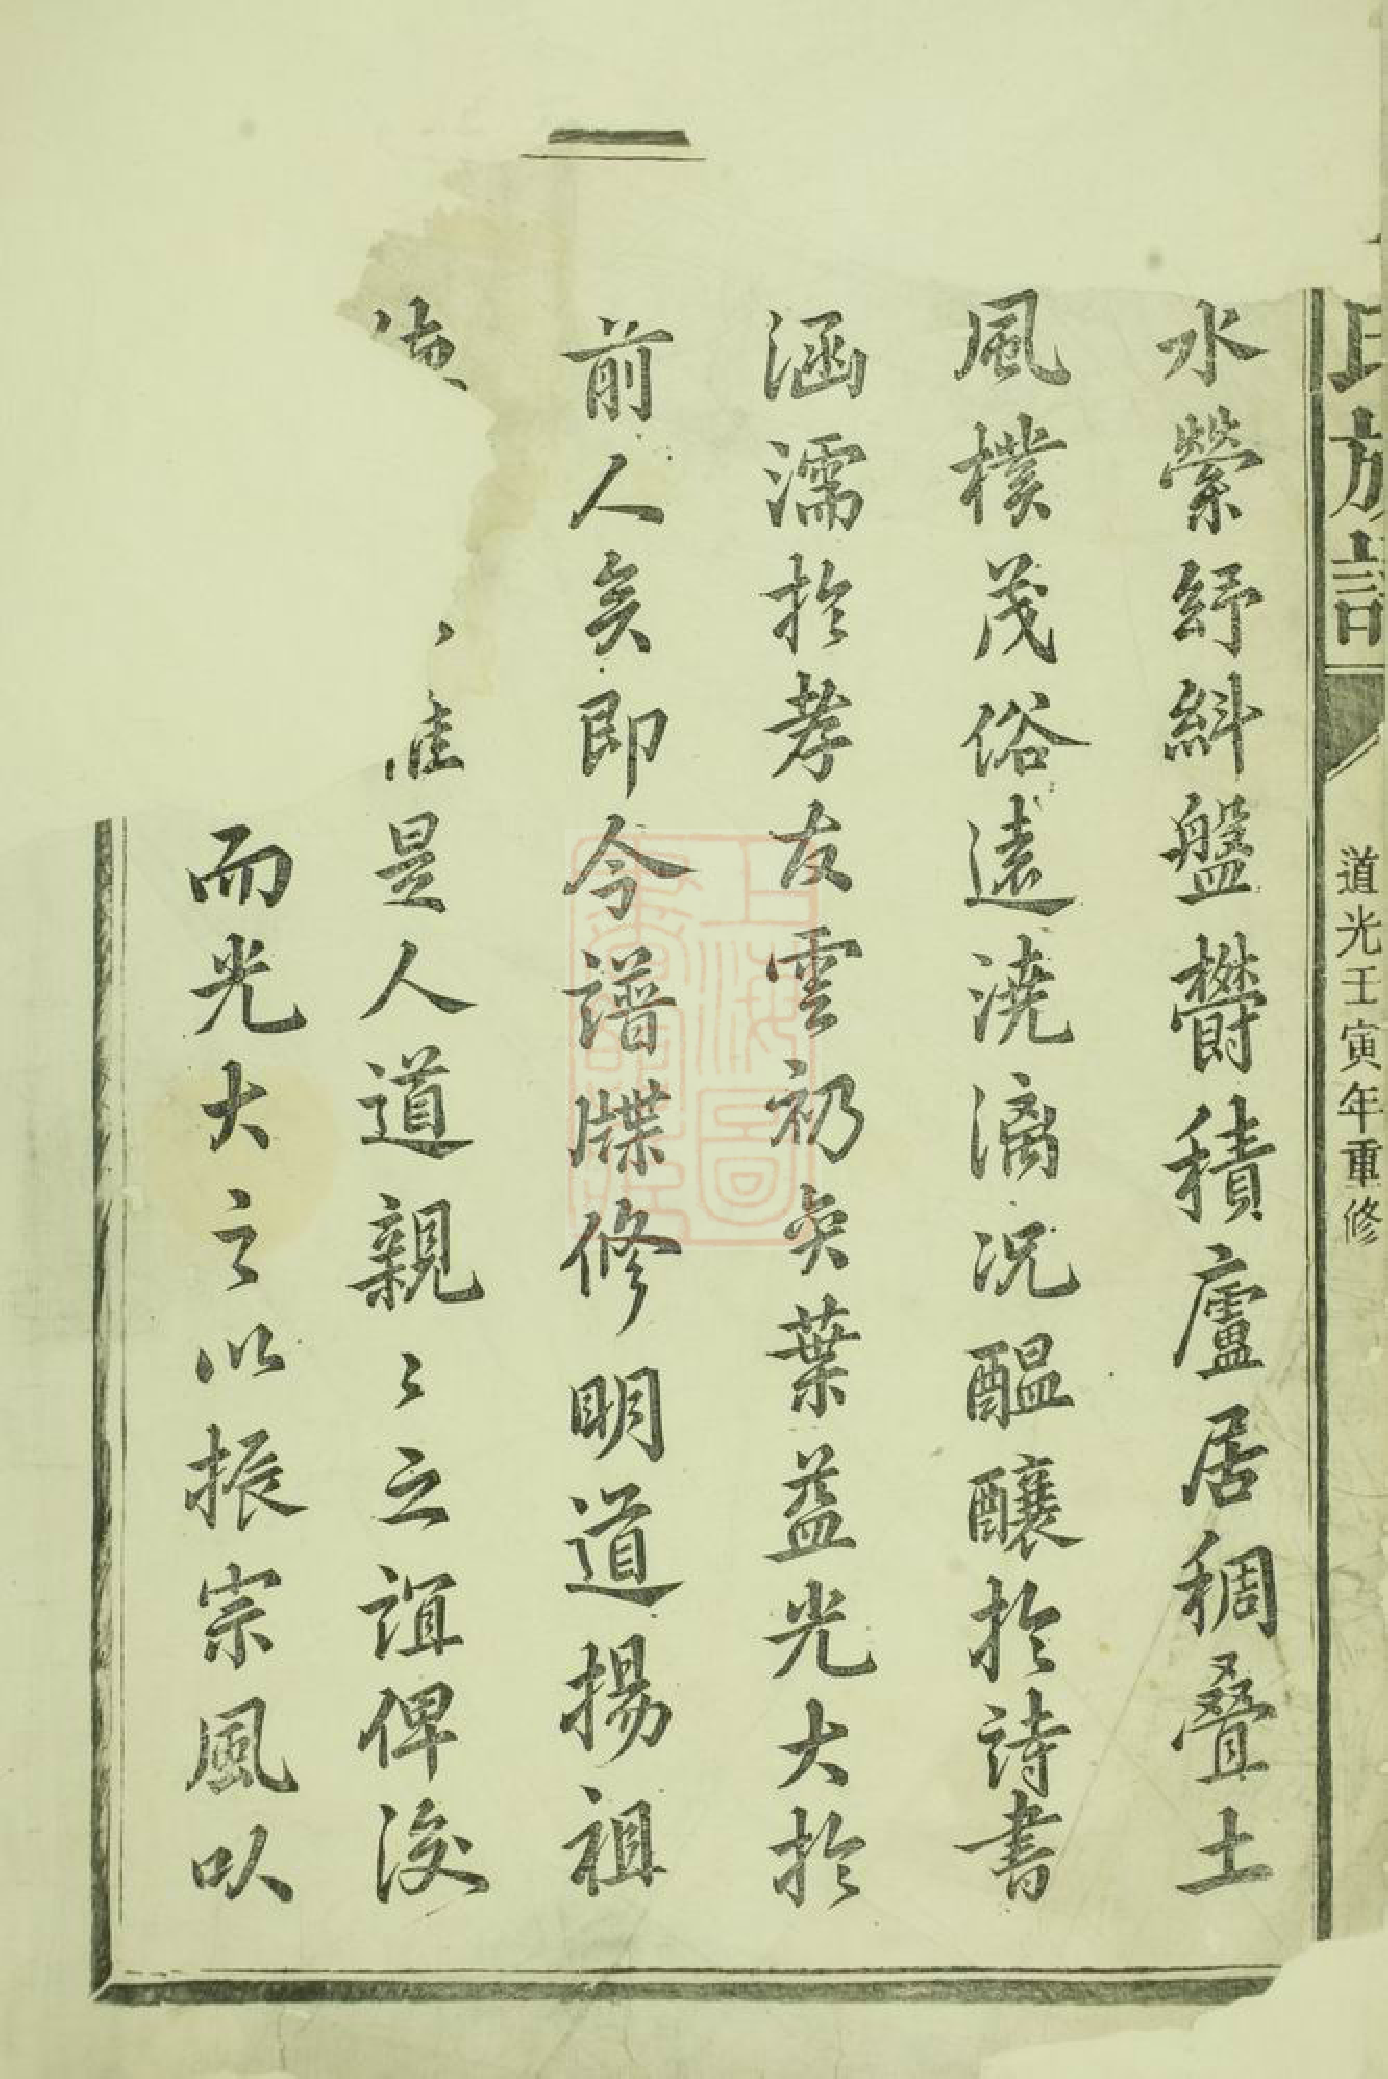 氏族譜
道光壬寅年重修
水縈紆糾盤欝積廬居稠叠土
風樸茂俗遠澆漓况醖釀於詩書
涵濡於孝友雲礽奕葉益光大於
前人矣即今譜牒修明道揚祖
德是人道親〻之誼俾後
而光大之以振宗風以
上海圖書館藏